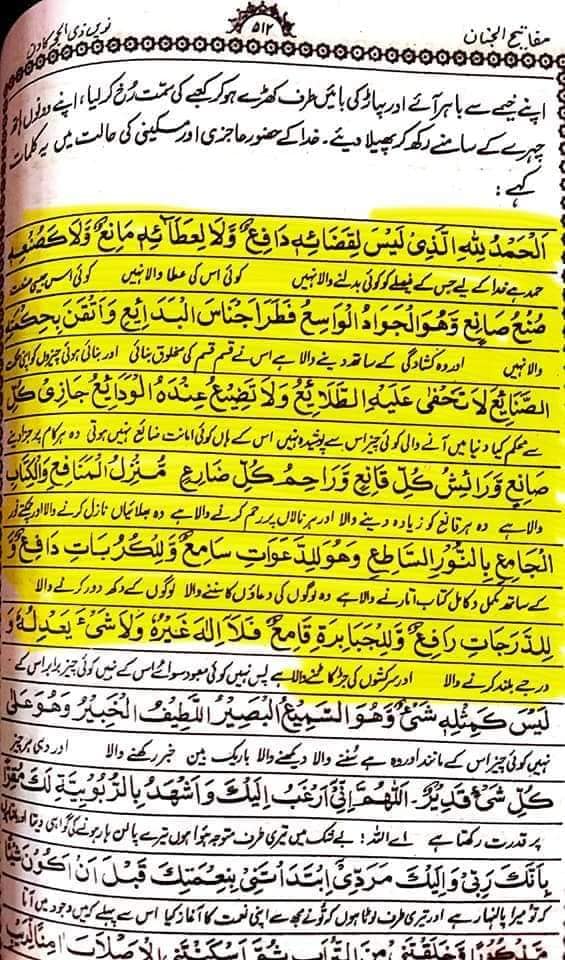 مفاتیح الجنان
۵۱۲
نویں ذی الحجہ کا دن
اپنے خیمے سے باہر آئے اور پہاڑ کی بائیں طرف کھڑے ہو کر کعبے کی سمت رُخ کر لیا، اپنے دونوں ہاتھ
چہرے کے سامنے رکھ کر پھیلا دیئے۔ خدا کے حضور عاجزی اور مسکینی کی حالت میں یہ کلمات
کہے :
اَلْحَمْدُ لِلّٰہِ الَّذِیْ لَیْسَ لِقَضَائِہٖ دَافِعٌ وَّلَا لِعَطَائِہٖ مَانِعٌ وَّلَا کَصُنْعِہٖ
حمد ہے خدا کے لیے جس کے فیصلے کو کوئی بدلنے والا نہیں کوئی اس کی عطا والا نہیں کوئی اس جیسی صنعت
صُنْعُ صَانِعٍ وَّھُوَ الْجَوَادُ الْوَاسِعُ فَطَرَ اَجْنَاسَ الْبَدَائِعِ وَاَتْقَنَ بِحِکْمَتِہِ
والا نہیں اور وہ کشادگی کے ساتھ دینے والا ہے اس نے قسم قسم کی مخلوق بنائی اور بنائی ہوئی چیزوں کو اپنی حکمت
الصَّنَائِعَ لَا تَخْفٰی عَلَیْہِ الطَّلَائِعُ وَلَا تَضِیْعُ عِنْدَہُ الْوَدَائِعُ جَازِیْ کُلِّ
سے محکم کیا دنیا میں آنے والی کوئی چیز اس سے پوشیدہ نہیں اس کے ہاں کوئی امانت ضائع نہیں ہوتی وہ ہر کام پر جزا دینے
صَانِعٍ وَّرَائِشُ کُلِّ قَانِعٍ وَّرَاحِمُ کُلِّ ضَارِعٍ مُّنْزِلُ الْمَنَافِعِ وَالْکِتَابِ
والا ہے وہ ہر قانع کو زیادہ دینے والا اور ہر نالاں پر رحم کرنے والا ہے وہ بھلائیاں نازل کرنے والا اور چمکتے نور
الْجَامِعِ بِالنُّوْرِ السَّاطِعِ وَھُوَ لِلدَّعَوَاتِ سَامِعٌ وَّلِلْکُرُبَاتِ دَافِعٌ وَّ
کے ساتھ مکمل و کامل کتاب اتارنے والا ہے وہ لوگوں کی دعاؤں کا سننے والا لوگوں کے دکھ دور کرنے والا
لِلدَّرَجَاتِ رَافِعٌ وَّلِلْجَبَابِرَۃِ قَامِعٌ فَلَا اِلٰہَ غَیْرُہٗ وَلَا شَیْءَ یَعْدِلُہٗ وَ
درجے بلند کرنے والا اور سرکشوں کی جڑ کاٹنے والا ہے پس نہیں کوئی معبود سوائے اس کے نہیں کوئی چیز برابر اس کے
لَیْسَ کَمِثْلِہٖ شَیْءٌ وَّھُوَ السَّمِیْعُ الْبَصِیْرُ اللَّطِیْفُ الْخَبِیْرُ وَھُوَ عَلٰی
نہیں کوئی چیز اس کے مانند اور وہ ہے سننے والا دیکھنے والا باریک بین خبر رکھنے والا اور وہی ہر چیز
کُلِّ شَیْءٍ قَدِیْرٌ۔ اَللّٰھُمَّ اِنِّیْ اَرْغَبُ اِلَیْکَ وَاَشْھَدُ بِالرُّبُوْبِیَّۃِ لَکَ مُقِرًّا
پر قدرت رکھتا ہے اے اللہ! بے شک میں تیری طرف متوجہ ہوا ہوں تیرے پالن ہار ہونے کی گواہی دیتا
بِاَنَّکَ رَبِّیْ وَاِلَیْکَ مَرَدِّیْ اِبْتَدَاْتَنِیْ بِنِعْمَتِکَ قَبْلَ اَنْ اَکُوْنَ شَیْئًا
کہ تو میرا پالنہار ہے اور تیری طرف لوٹا ہوں کہ تُو نے مجھ سے اپنی نعمت کا آغاز کیا اس سے پہلے کہ میں وجود میں آتا
مَّذْکُوْرًا وَّخَلَقْتَنِیْ مِنَ التُّرَابِ ثُمَّ اَسْکَنْتَنِی الْاَصْلَابَ اٰمِنًا لِّرَیْبِ